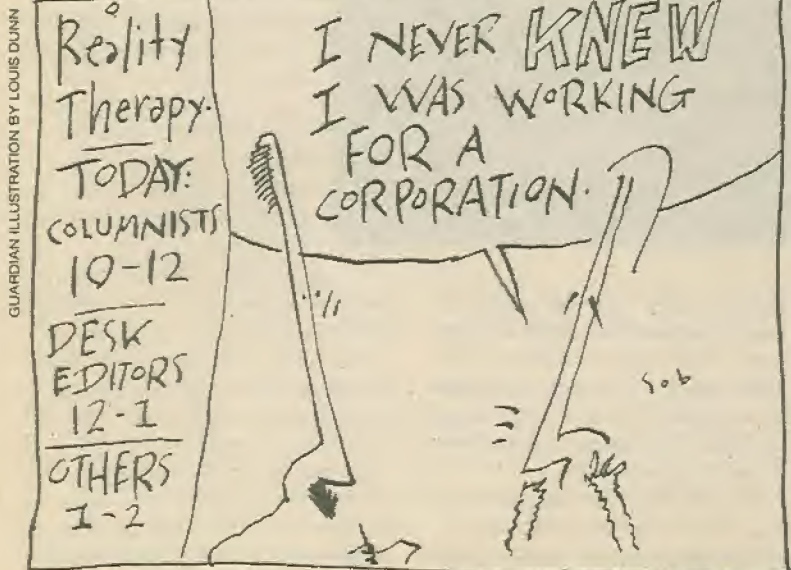 GUARDIAN ILLUSTRATION BY LOUIS DUNN
Reality
Therapy.
TODAY:
COLUMNISTS
10-12
DESK
EDITORS
12-1
OTHERS
1-2
I NEVER KNEW
I WAS WORKING
FOR A
CORPORATION.
Sob